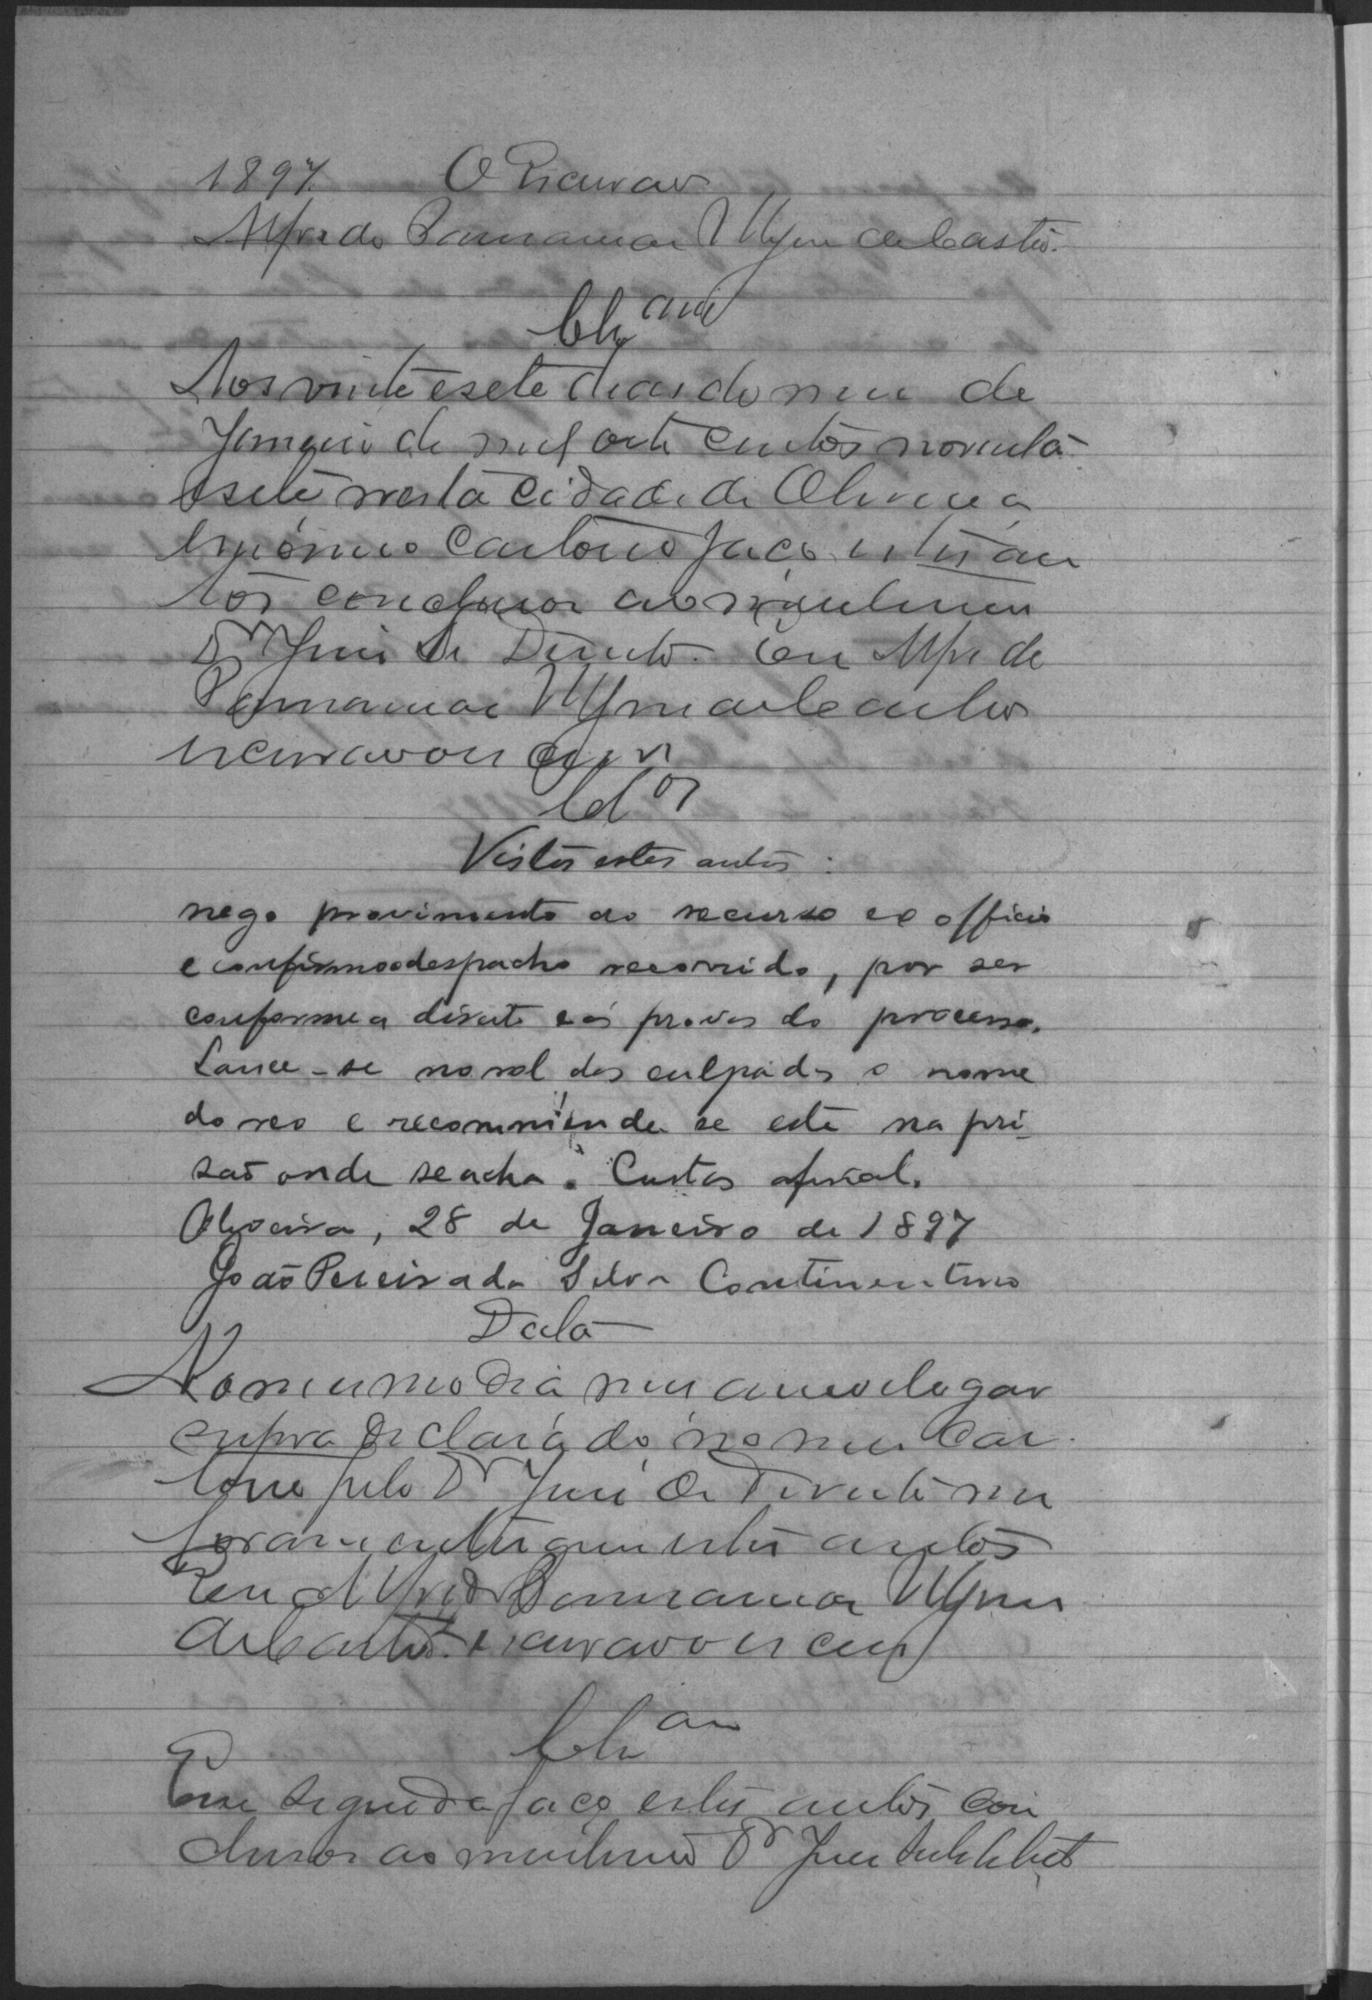 1897. O Escrivão
Alfredo Parranaior Mynu de Castro.
Clsam
Aos vinte e sete dias do mes de
Janeiro de mil oito centos noventa
e sete nesta cidade de Oliveira
em o meo Cartorio faço estes au
tos conclusos ao meritissimo
Dr Juis de Direito. Eu Alfredo
de Castro
escrivão o escrevi
Cls
Vistos estes autos:
nego provimento ao recurso ex officio
e confirmo o despacho recorrido, por ser
conforme a direito e ás provas do processo.
Lance-se no rol dos culpados o nome
do reo e recommende se este na pri-
são onde se acha. Custas afinal.
Oliveira, 28 de Janeiro de 1897
João Pereira da Silva Continentino
Data
No mesmo dia mes anno e logar
supra declarado, no meu Car
torio pelo Dr Juis de Direito me
foram entregues estes autos
Eu Alfredo
de Castro escrivão o escrevi
Em seguida faço estes autos con
clusos ao meritissimo Dr Juis